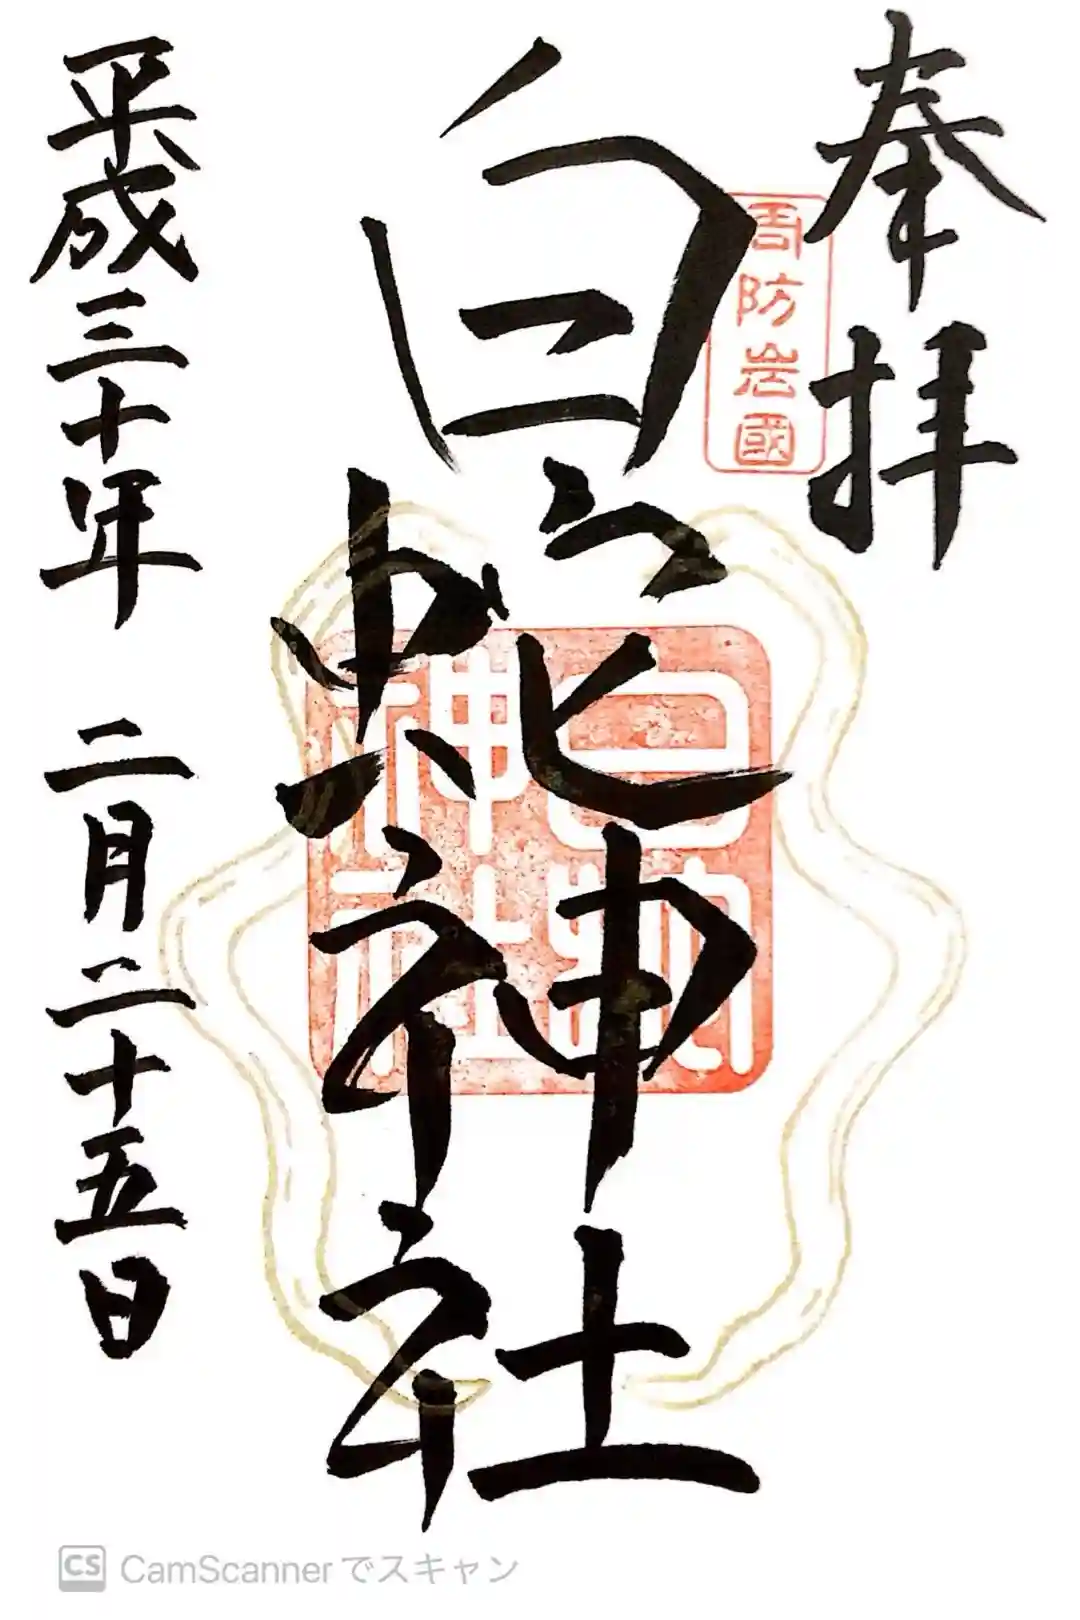 奉拝
周防岩國
白蛇神社
白蛇
神社
平成三十年 二月二十五日
CS CamScannerでスキャン